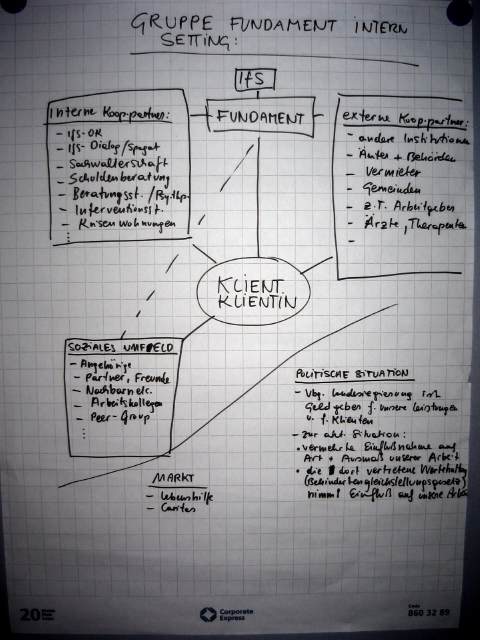 GRUPPE FUNDAMENT INTERN
SETTING:
IfS
FUNDAMENT
Interne Koop.partner:
- IfS-OR
- IfS-Dialog/Spagat
- Sachwalterschaft
- Schuldenberatung
- Beratungsst./Psy.thp.
- Interventionsst.
- Krisenwohnungen
externe Koop.partner:
- andere Institutionen
- Ämter + Behörden
- Vermieter
- Gemeinden
- z.T. Arbeitgeber
- Ärzte, Therapeuten
-
KLIENT
KLIENTIN
SOZIALES UMFELD
- Angehörige
- Partner, Freunde
- Nachbarn etc.
- Arbeitskollegen
- Peer-Group
POLITISCHE SITUATION
- Vbg. Landesregierung ist
Geldgeber f. unsere Leistungen
u. f. Klienten
- Zur akt. Situation:
• vermehrte Einflußnahme auf
Art + Ausmaß unserer Arbeit
• die dort vertretene Werthaltung
(Behindertengleichstellungsgesetz)
nimmt Einfluß auf unsere Arbeit
MARKT
- Lebenshilfe
- Caritas
20
Corporate
Express
Code
860 32 89